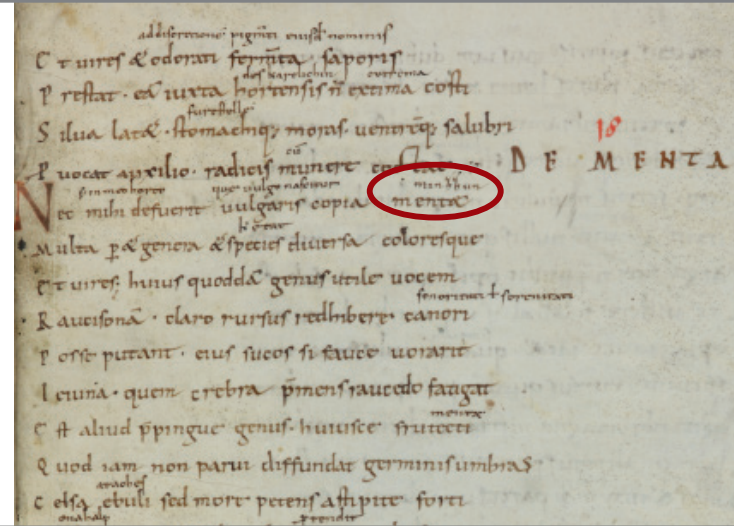 ad discretionē pigm̄ti eiusdē nominis
Et uires & odorati saporis
extrema
Prestat. ea iuxta hortensis n̄ extima costi
Silua lat&. stomachiq; moras. uentreq; salubri
18
Prouocat auxilio. radicis munere DE MENTA
s in meo horto que uulgo nascitur
Nec mihi defuerit uulgaris copia mentæ
Multa p & genera & species diuersa coloresque
Et uires. huius quoddā genus utile uocem
sonoritati ł serenitati
Raucisonā. claro rursus redhibere canori
Posse putant. eius sucos si fauce uorarit
Ieiuna. quem crebra p̄mens raucedo fatigat
mentæ
Est aliud p̄pingue genus. huiusce frutecti
Quod iam non parui diffundat germinis umbras
Celsa ebuli sed more petens a stipite forti
p̄tendit